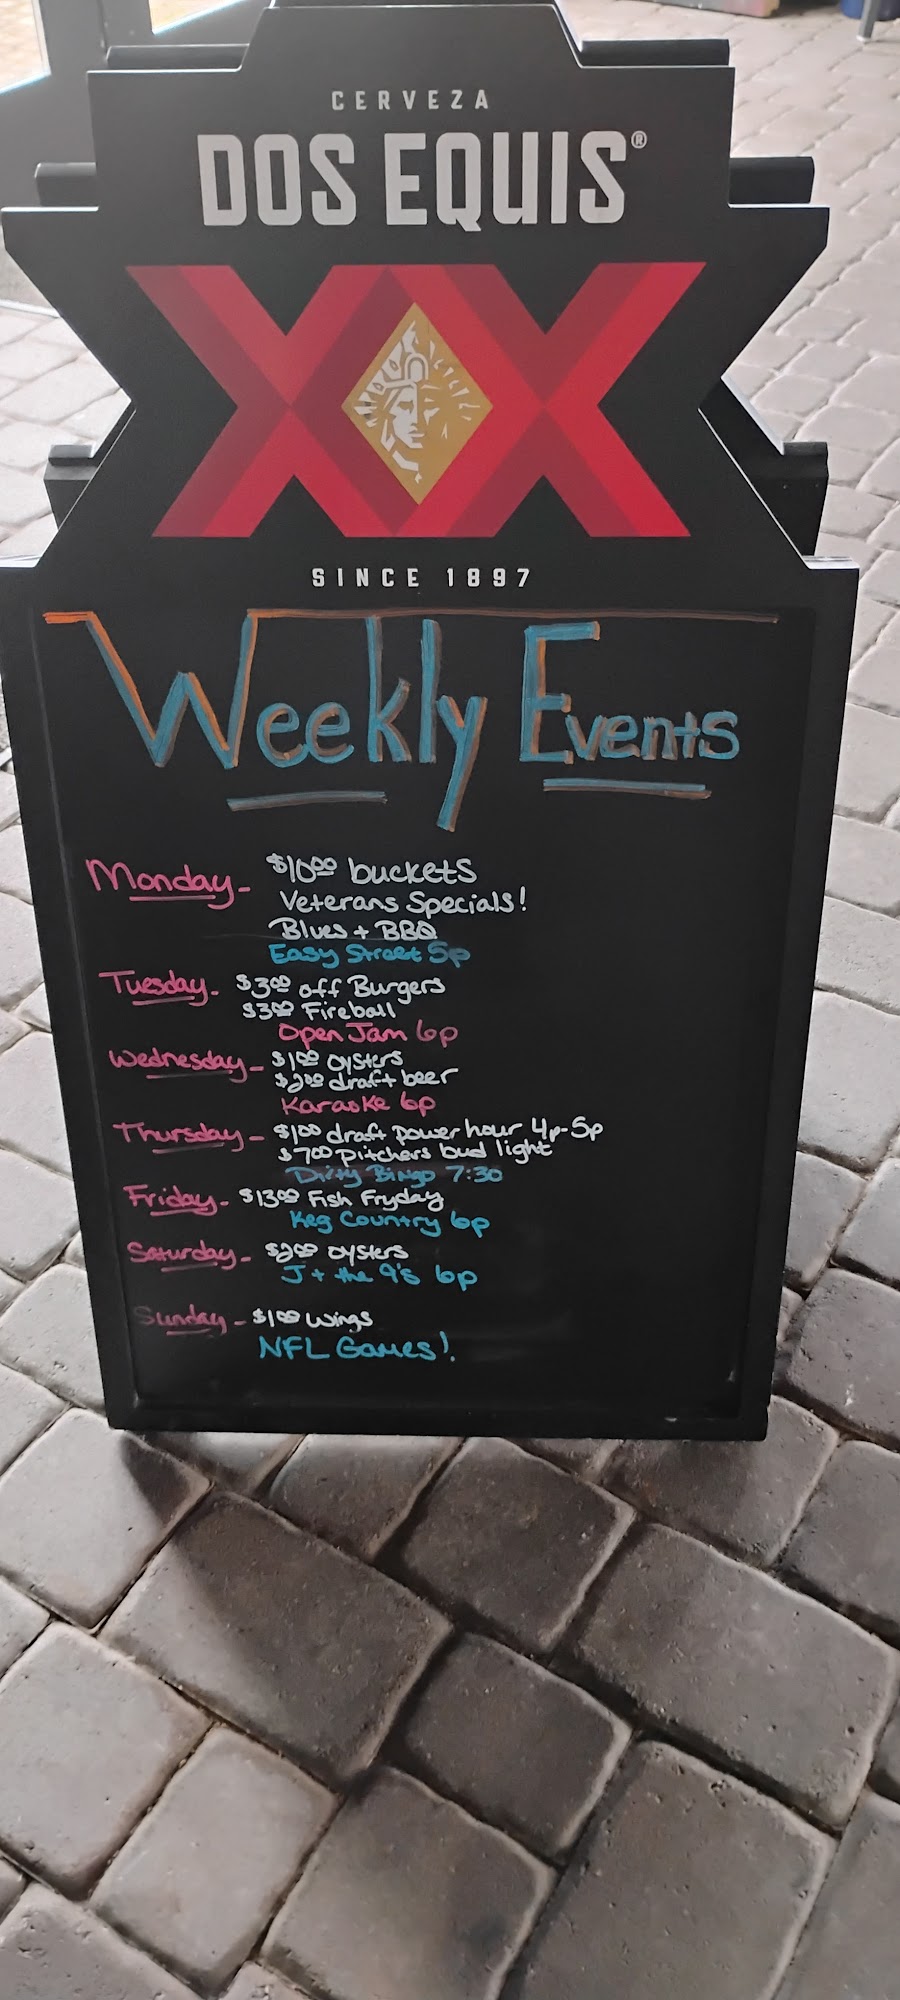 CERVEZA
DOS EQUIS®
XX
SINCE 1897
Weekly Events
Monday - $10.00 buckets
Veterans Specials!
Blues + BBQ
Easy Street 5p
Tuesday - $3.00 off Burgers
$3.00 Fireball
Open Jam 6p
Wednesday - $1.00 oysters
$2.00 draft beer
Karaoke 6p
Thursday - $1.00 draft power hour 4p-5p
$7.00 pitchers bud light
Dirty Bingo 7:30
Friday - $13.00 Fish Fryday
Keg Country 6p
Saturday - $2.00 oysters
J + the 9's 6p
Sunday - $1.00 wings
NFL Games!